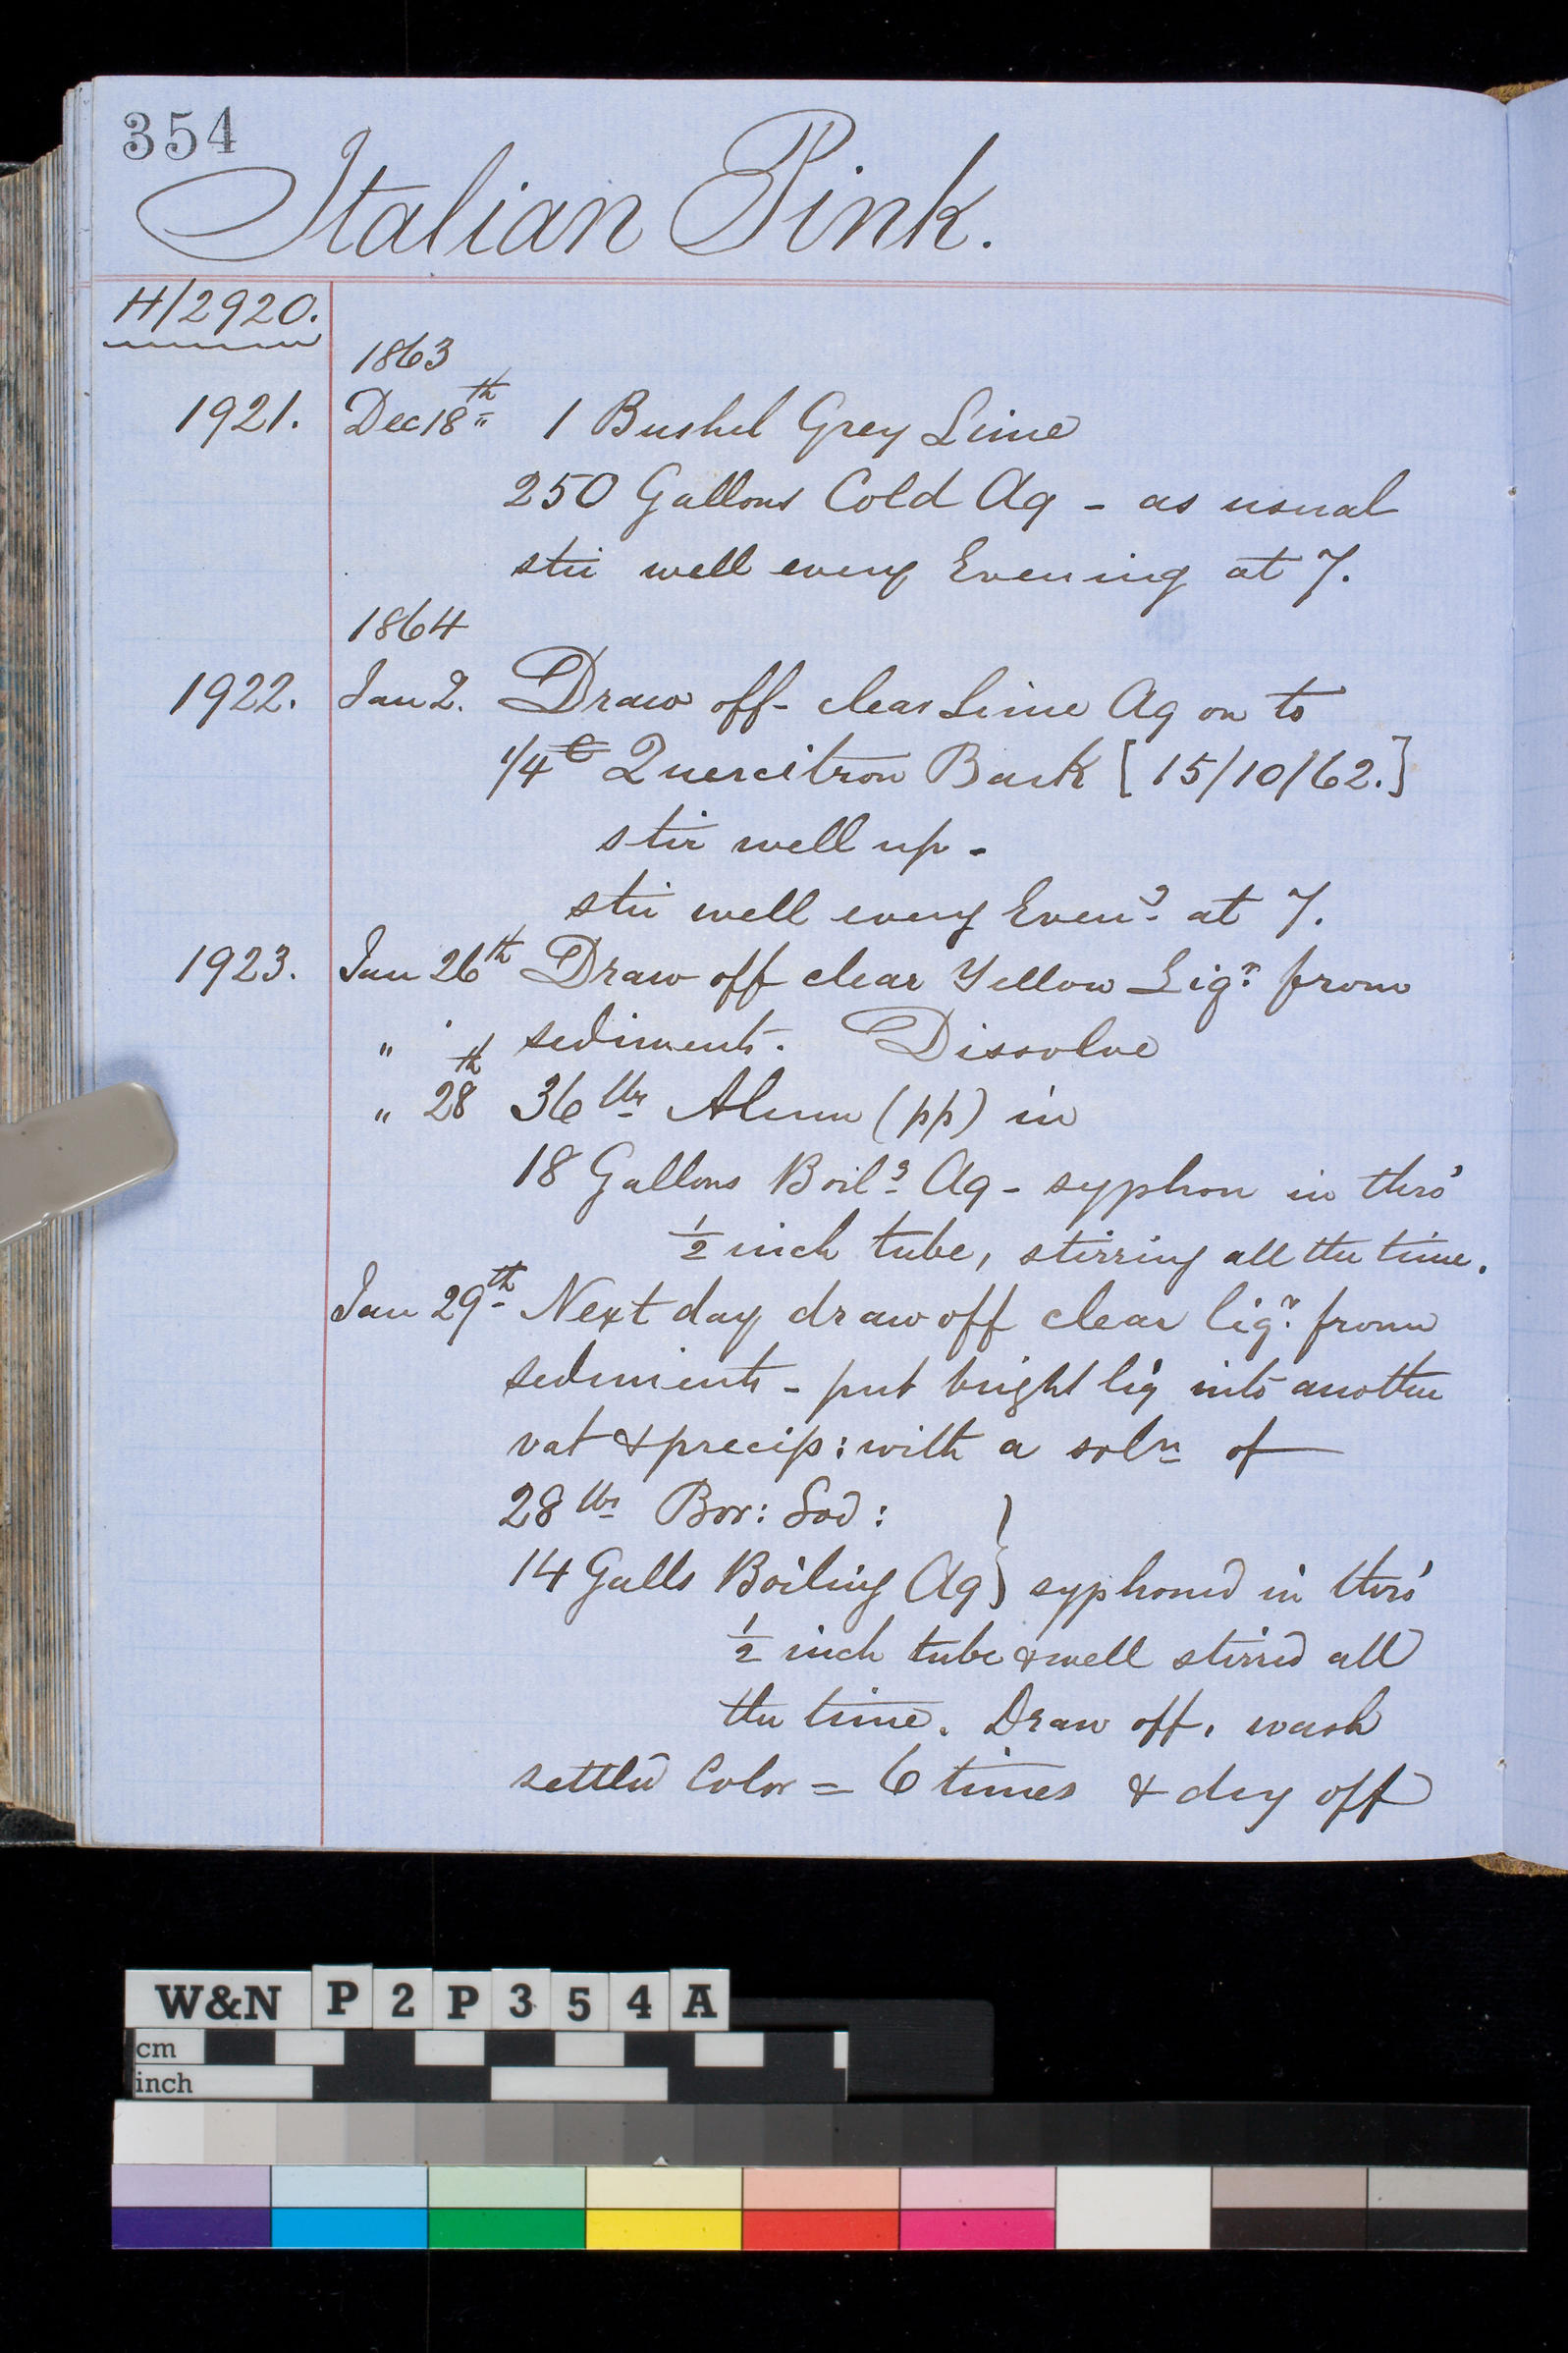 354
Italian Pink.
H/2920.
1863
1921. Dec 18th 1 Bushel Grey Lime
250 Gallons Cold Aq - as usual
stir well every Evening at 7.
1864
1922. Jan 2. Draw off - clear Lime Aq on to
1/4 C Quercitron Bark [15/10/62.]
stir well up -
stir well every Eveng at 7.
1923. Jan 26th Draw off clear Yellow Liqr from
" sediments. Dissolve
" 28th 36 lbs Alum (pp) in
18 Gallons Boilg Aq - syphon in thro'
1/2 inch tube, stirring all the time.
Jan 29th Next day draw off clear liqr from
sediments - put bright liq into another
vat & precip: with a soln of
28 lbs Bor: Sod: }
14 Galls Boiling Aq } syphoned in thro'
1/2 inch tube & well stirred all
the time. Draw off, wash
settled Color = 6 times & dry off
W&N P2P354A
cm
inch